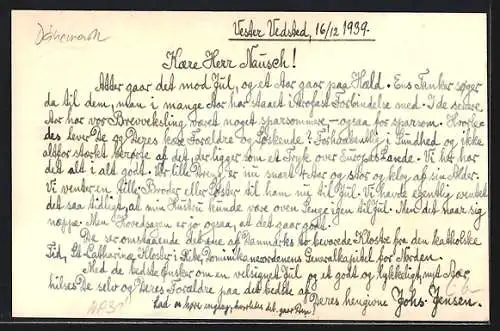 Dänemark
Vester Vedsted, 16/12 1939.
Kære Herr Nausch!
Atter gaar det mod Jul, og et Aar gaar paa Hæld. Ens Tanker søger
da til dem, man i mange Aar har staaet i trofast Forbindelse med. I de senere
Aar har vor Brevveksling været noget sparsommere – ogsaa for sparsom. Hvorle-
des lever De og Deres kære Forældre og Søskende? Forhaabentlig i Sundhed og ikke
altfor stærkt berørte af det, der ligger som et Tryk over Europas Lande. Vi her har
det alt i alt godt. Vor lille Dreng er nu snart 4 Aar og stor og klog af sin Alder.
Vi venter en lille Broder eller Søster til ham nu til Jul. Vi havde egentlig ventet
det saa tidligt, at min Hustru kunde være oven Senge igen til Jul. Men det naar sig
næppe. Men Hovedsagen er jo ogsaa, at det gaar godt.
De ser omstaaende det ene af Danmarks to bevarede Klostre fra den katholske
Tid, St. Catharinæ Kloster i Ribe, Dominikanerordenens Generalkapitel for Norden.
Med de bedste Ønsker om en velsignet Jul og et godt og lykkeligt nyt Aar
hilses De selv og Deres Forældre paa det bedste af
Deres hengivne Johs. Jensen.
Lad os høre engang, hvorledes det gaar Dem!